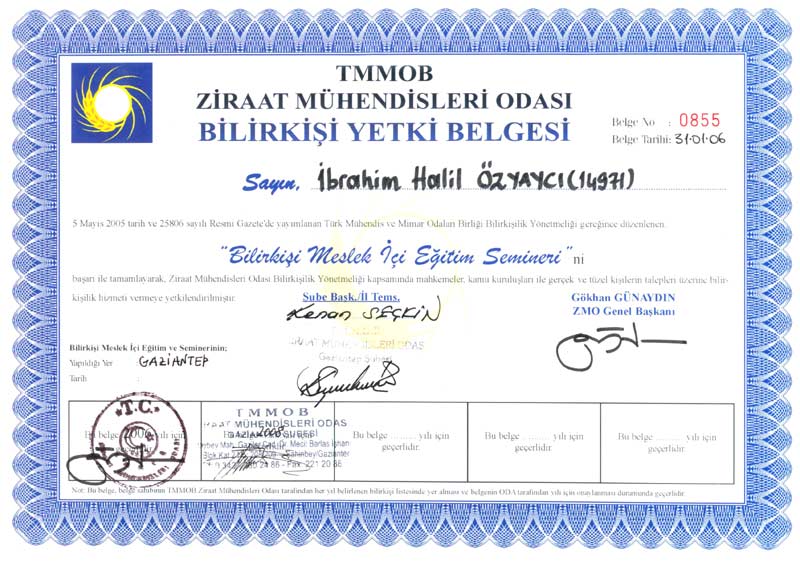 TMMOB
ZİRAAT MÜHENDİSLERİ ODASI
BİLİRKİŞİ YETKİ BELGESİ
Belge No : 0855
Belge Tarihi: 31.01.06
Sayın, İbrahim Halil ÖZYAYCI (14971)
5 Mayıs 2005 tarih ve 25806 sayılı Resmi Gazete'de yayımlanan Türk Mühendis ve Mimar Odaları Birliği Bilirkişilik Yönetmeliği gereğince düzenlenen.
"Bilirkişi Meslek İçi Eğitim Semineri"ni
başarı ile tamamlayarak, Ziraat Mühendisleri Odası Bilirkişilik Yönetmeliği kapsamında mahkemeler, kamu kuruluşları ile gerçek ve tüzel kişilerin talepleri üzerine bilir-
kişilik hizmeti vermeye yetkilendirilmiştir.
Şube Başk./İl Tems.
Kenan SEÇKİN
Gökhan GÜNAYDIN
ZMO Genel Başkanı
ZİRAAT MÜHENDİSLERİ ODASI
Gaziantep Şubesi
Bilirkişi Meslek İçi Eğitim ve Seminerinin;
Yapıldığı Yer : GAZİANTEP
Tarih :
T.C.
Bu belge 2006 yılı için
TMMOB
ZİRAAT MÜHENDİSLERİ ODAS
GAZİANTEP ŞUBESİ
Bu belge 2008 yılı için
Bu belge ......... yılı için
geçerlidir.
Bu belge ......... yılı için
geçerlidir.
Bu belge ......... yılı için
geçerlidir.
Not: Bu belge, belge sahibinin TMMOB Ziraat Mühendisleri Odası tarafından her yıl belirlenen bilirkişi listesinde yer alması ve belgenin ODA tarafından yılı için onaylanması durumunda geçerlidir.